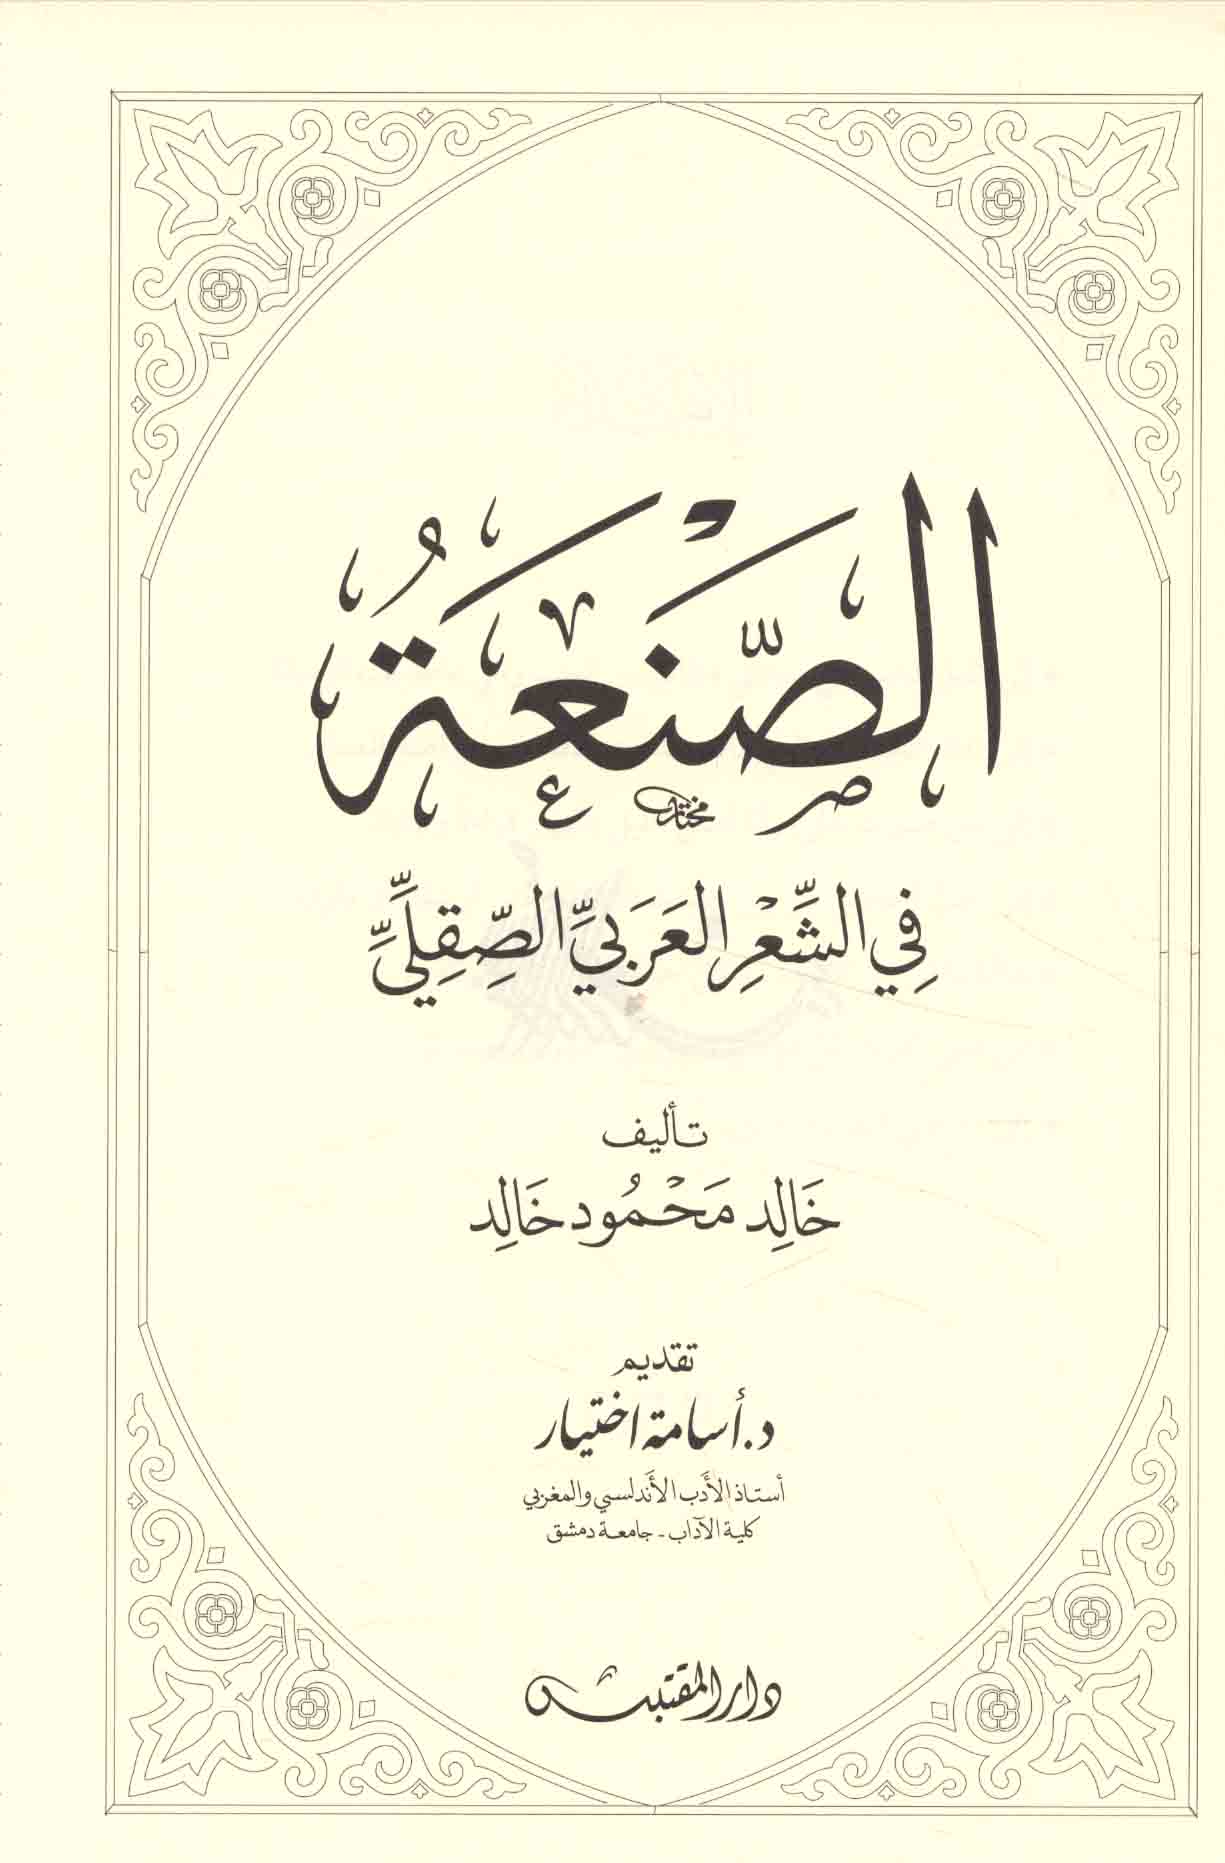 الصَّنْعَةُ
مختار
فِي الشِّعْرِ العَرَبِيِّ الصِّقِلِيِّ
تأليف
خَالِد مَحْمُود خَالِد
تقديم
د. أسامة اختيار
أستاذ الأدب الأندلسي والمغربي
كلية الآداب - جامعة دمشق
دار المقتبس